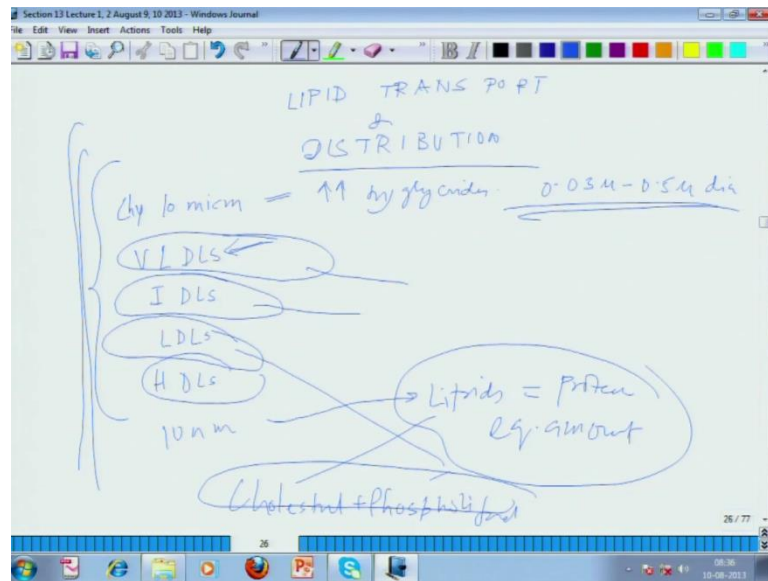 Section 13 Lecture 1, 2 August 9, 10 2013 - Windows Journal
File Edit View Insert Actions Tools Help
LIPID TRANSPORT
&
DISTRIBUTION
Chylomicrn = ↑↑ tryglycerides. 0.03µ-0.5µ dia
VLDLs
IDLs
LDLs
HDLs
10nm
Lipids = Protein
eq. amount
Cholestrol + Phospholipid
26 / 77
26
08:36
10-08-2013